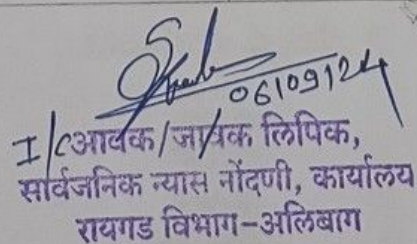 06/09/24
I/c आवक/जावक लिपिक,
सार्वजनिक न्यास नोंदणी, कार्यालय
रायगड विभाग-अलिबाग